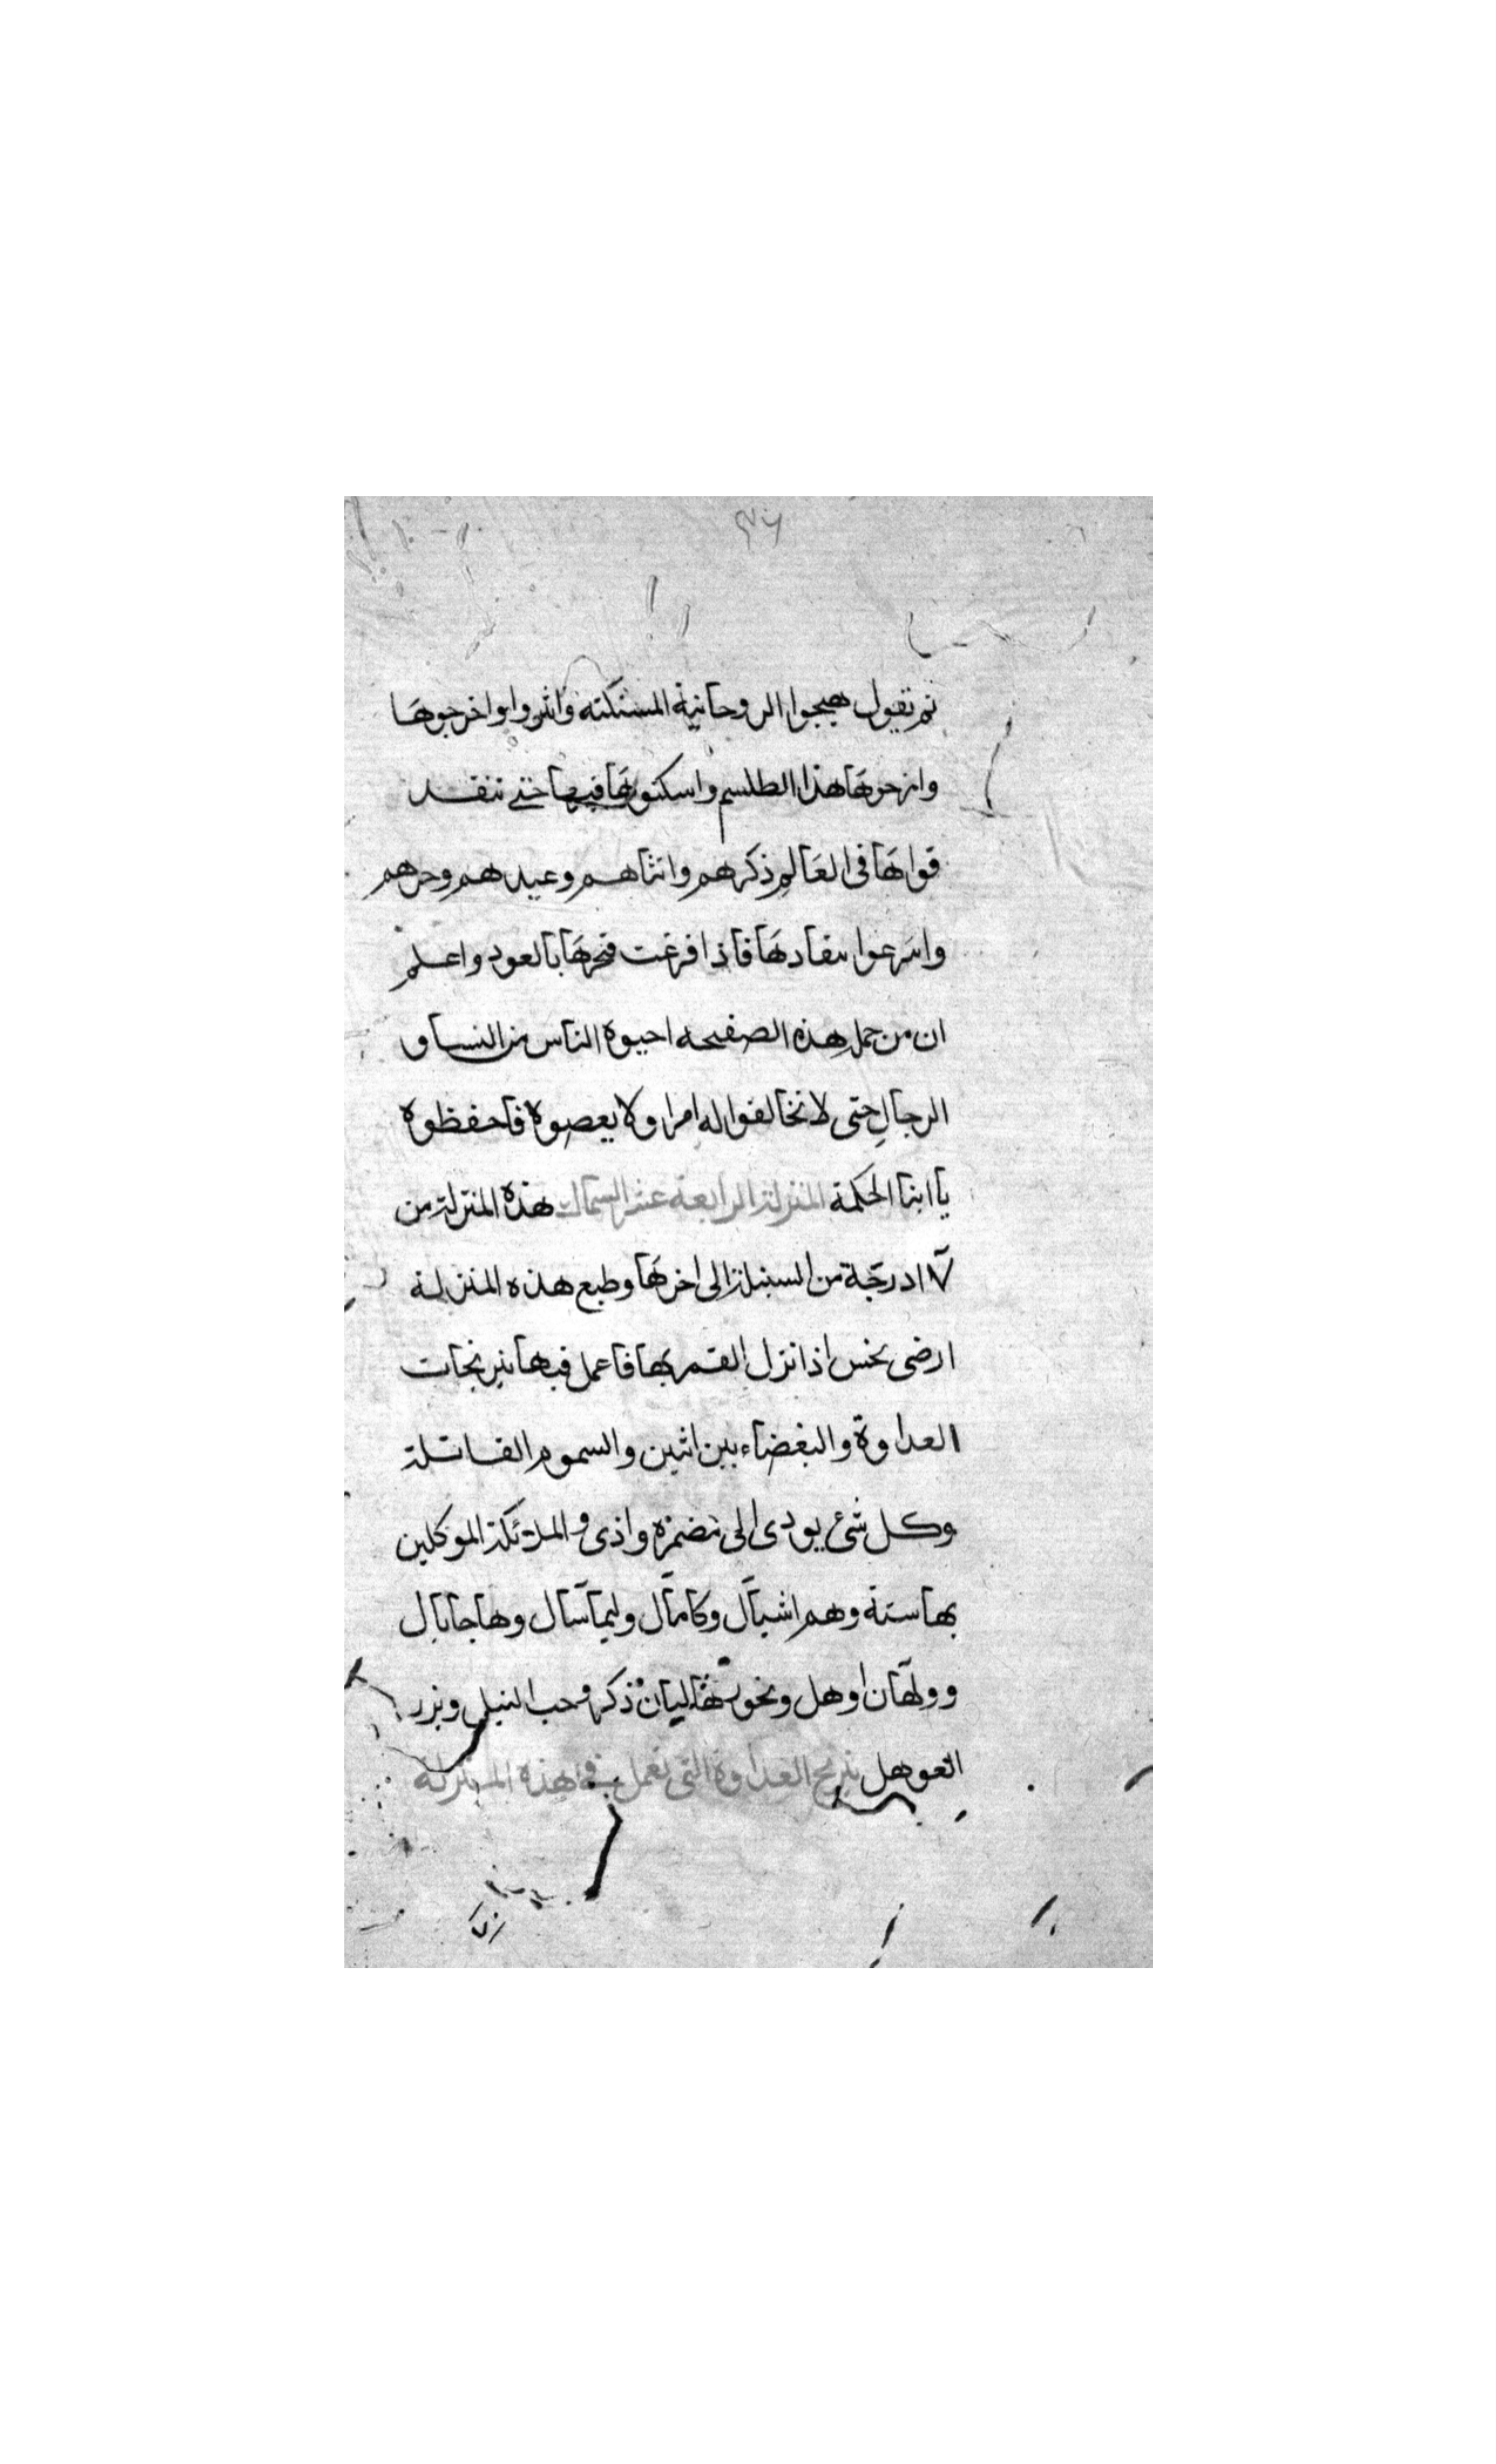 ثم تقول هيجوا الروحانية المستكنه واثيروا واخرجوها
وازجوها هذا الطلسم واسكنوها فيها حتى تنفد
قواها فى العالم ذكرهم وانثاهم وعبيدهم وحرهم
واسرعوا نفادها فاذا فرغت فبخرها بالعود واعلم
ان من حمل هذه الصفيحه احبوه الناس من النسا و
الرجال حتى لا تخالفوا له امرا ولا يعصوه فاحفظوه
يا ابنا الحكمة المنزلة الرابعة عشر السماك هذه المنزلة من
١٧ درجة من السنبلة الى اخرها وطبع هذه المنزلة
ارضى نحس اذا نزل القمر بها فاعمل فيها نيرنجات
العداوة والبغضاء بين اثنين والسموم القاتلة
وكل شئ يودى الى مضرة واذى والملائكة الموكلين
بها ستة وهم اشيآل وكامآل وليمآسآل وهاجابال
وولهآن اوهل وبخورها لبان ذكر وحب النيل وبزر
العوهل نيرنج العداوة التى تعمل فى هذه المنزلة